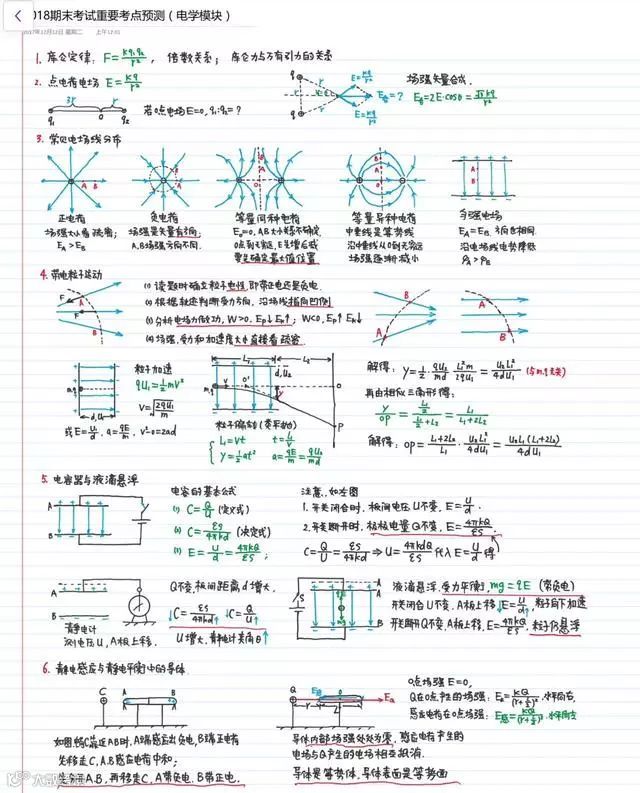 2018期末考试重要考点预测（电学模块）
2017年12月12日 星期二 上午12:01
1. 库仑定律: F=kq₁q₂/r², 倍数关系; 库仑力与万有引力的关系
2. 点电荷电场 E=kq/r²
3r r
q₁ 0 q₂
若0点电场E=0, q₁:q₂=?
E=kq/r²
E合=?
E=kq/r²
场强矢量合成.
E合=2E·cosθ=
3. 常见电场线分布
正电荷
场强大小看疏密;
E_A > E_B
负电荷
场强是矢量有方向;
A.B场强方向不同.
等量同种电荷
E₀=0, AB大小关系不确定
0点到无穷远, E先增后减
要先确定最大值位置
等量异种电荷
中垂线是等势线
沿中垂线从0到无穷远
场强逐渐减小
匀强电场
E_A=E_B. 方向也相同.
沿电场线电势降低
φ_A>φ_B
4. 带电粒子运动
(1) 读题时确立粒子电性, 即带正电还是负电.
(2) 根据轨迹判断受力方向, 沿场线指向凹侧
(3) 分析电场力做功, W>0. Ep↓ Ek↑; W<0, Ep↑ Ek↓
(4) 场强、受力和加速度大小直接看疏密.
粒子加速
qU₁=½mv²
v=√(2qU₁/m)
或E=U/d, a=qE/m, v²-0=2ad
粒子偏转 (类平抛)
L₁=vt t=L₁/v
y=½at² a=qE/m=qU₂/md
解得: y=½·qU₂/md·L₁²m/2qU₁=U₂L₁²/4dU₁ (与m.q无关)
再由相似三角形得:
y/OP=(L₁/2)/(L₁/2+L₂)=L₁/(L₁+2L₂)
解得: OP=(L₁+2L₂)/L₁·U₂L₁²/4dU₁=U₂L₁(L₁+2L₂)/4dU₁
5. 电容器与液滴悬浮
电容的基本公式
(1) C=Q/U (定义式)
(2) C=εS/4πkd (决定式)
(3) E=U/d=4πkQ/εS;
注意, 如左图
1. 开关闭合时, 极间电压U不变, E=U/d.
2. 开关断开时, 极板电量Q不变, E=4πkQ/εS.
C=Q/U=εS/4πkd ⇒ U=4πkdQ/εS 代入 E=U/d 得
静电计
测电压U, A板上移.
Q不变, 极间距离d增大,
↓C=εS/4πkd↑ ↓C=Q/U↑
U增大, 静电计夹角θ↑
液滴悬浮. 受力平衡, mg=qE (带负电)
开关闭合U不变, A板上移, ↓E=U/d↑, 粒子向下加速
开关断开Q不变, A板上移, E=4πkQ/εS, 粒子仍悬浮
6. 静电感应与静电平衡中的导体
如图将C靠近AB时, A端感应出负电, B端正电荷
先移走C, A.B感应电荷中和;
先分开A.B, 再移走C, A带负电. B带正电.
0点场强E=0,
Q在0点产生的场强: E_Q=kQ/(r+L/2)², 水平向右.
感应电荷在0点场强: E感=kQ/(r+L/2)², 水平向左
导体内部场强处处为零, 感应电荷产生的
电场与Q产生的电场相互抵消.
导体是等势体, 导体表面是等势面